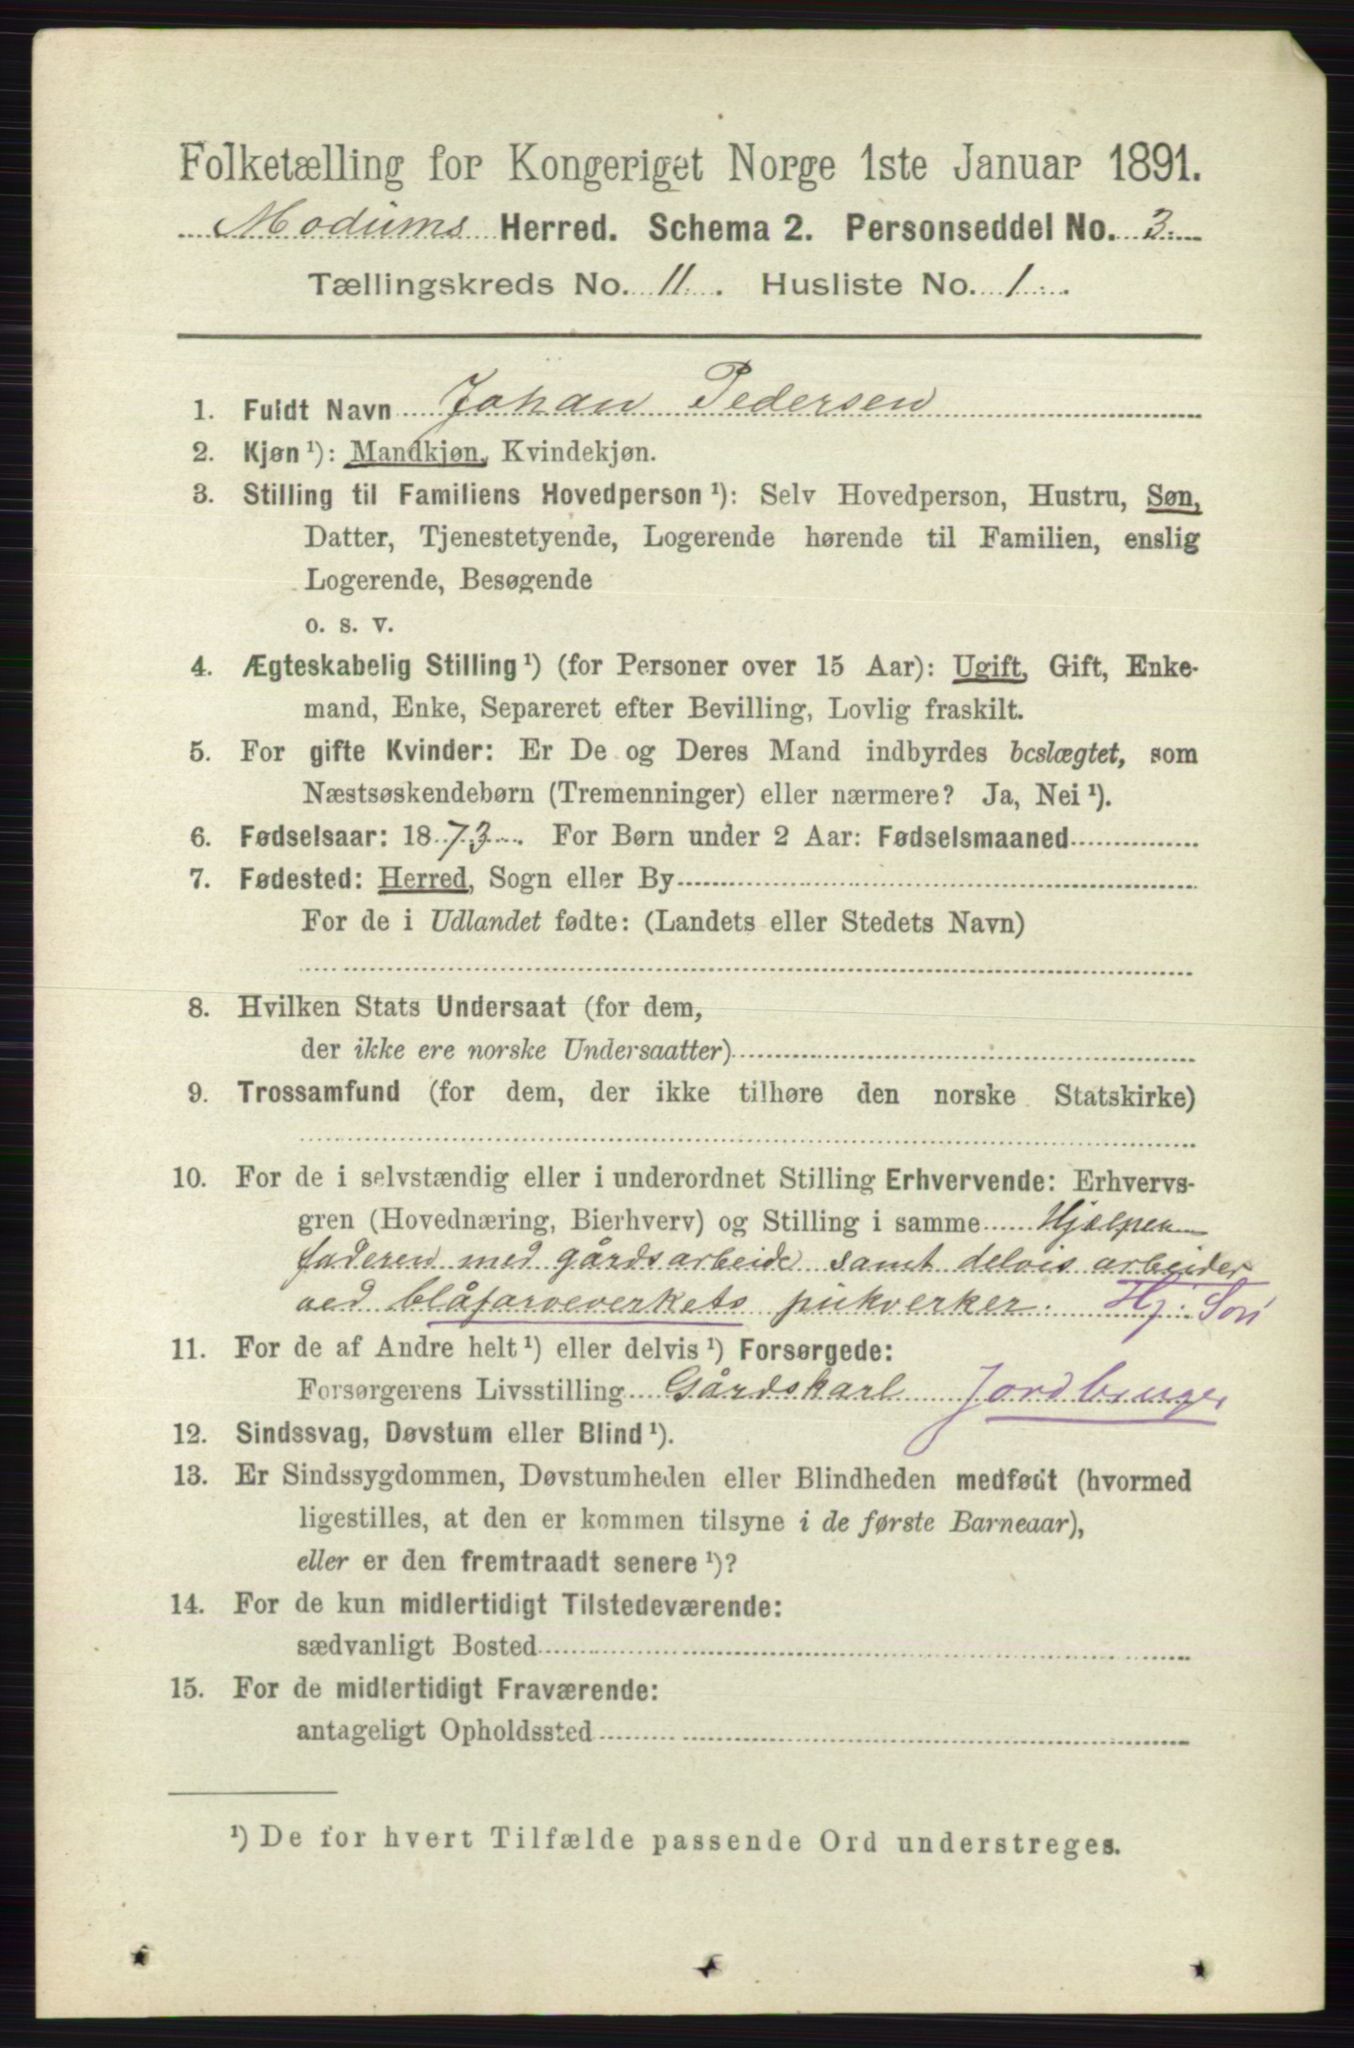 Folketælling for Kongeriget Norge 1ste Januar 1891.
Modums Herred. Schema 2. Personseddel No. 3.
Tællingskreds No. 11. Husliste No. 1.
1. Fuldt Navn Johan Pedersen
2. Kjøn ¹): Mandkjøn, Kvindekjøn.
3. Stilling til Familiens Hovedperson ¹): Selv Hovedperson, Hustru, Søn,
Datter, Tjenestetyende, Logerende hørende til Familien, enslig
Logerende, Besøgende
o. s. v.
4. Ægteskabelig Stilling ¹) (for Personer over 15 Aar): Ugift, Gift, Enke-
mand, Enke, Separeret efter Bevilling, Lovlig fraskilt.
5. For gifte Kvinder: Er De og Deres Mand indbyrdes beslægtet, som
Næstsøskendebørn (Tremenninger) eller nærmere? Ja, Nei ¹).
6. Fødselsaar: 1873. For Børn under 2 Aar: Fødselsmaaned
7. Fødested: Herred, Sogn eller By
For de i Udlandet fødte: (Landets eller Stedets Navn)
8. Hvilken Stats Undersaat (for dem,
der ikke ere norske Undersaatter)
9. Trossamfund (for dem, der ikke tilhøre den norske Statskirke)
10. For de i selvstændig eller i underordnet Stilling Erhvervende: Erhvervs-
gren (Hovednæring, Bierhverv) og Stilling i samme Hjælper
faderen med gårdsarbeide samt delvis arbeider
ved blåfarveverkets pukverker. Hj. Søn
11. For de af Andre helt ¹) eller delvis ¹) Forsørgede:
Forsørgerens Livsstilling Gårdskarl Jordbruger
12. Sindssvag, Døvstum eller Blind ¹).
13. Er Sindssygdommen, Døvstumheden eller Blindheden medfødt (hvormed
ligestilles, at den er kommen tilsyne i de første Barneaar),
eller er den fremtraadt senere ¹)?
14. For de kun midlertidigt Tilstedeværende:
sædvanligt Bosted
15. For de midlertidigt Fraværende:
antageligt Opholdssted
¹) De for hvert Tilfælde passende Ord understreges.